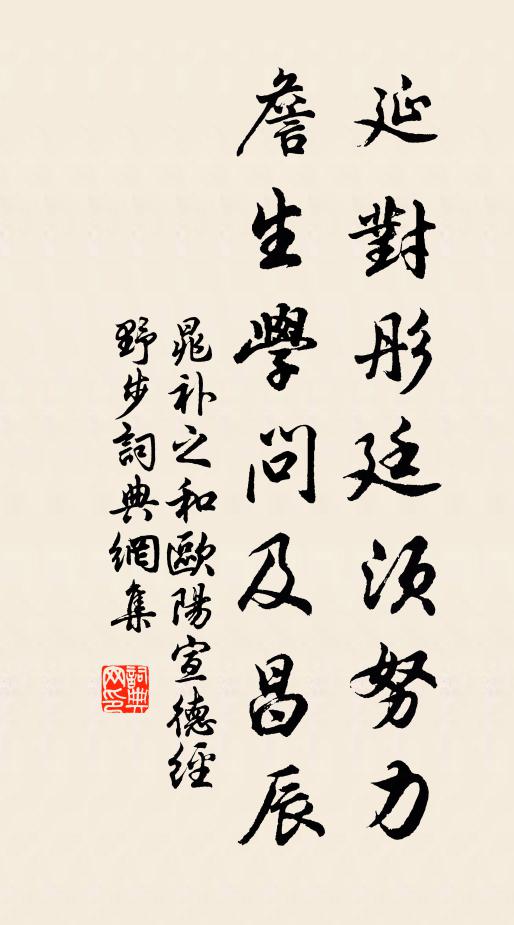 延對彤廷須努力
詹生學問及昌辰
晁補之和歐陽宣德經
野步詞典網集
詞典
網印